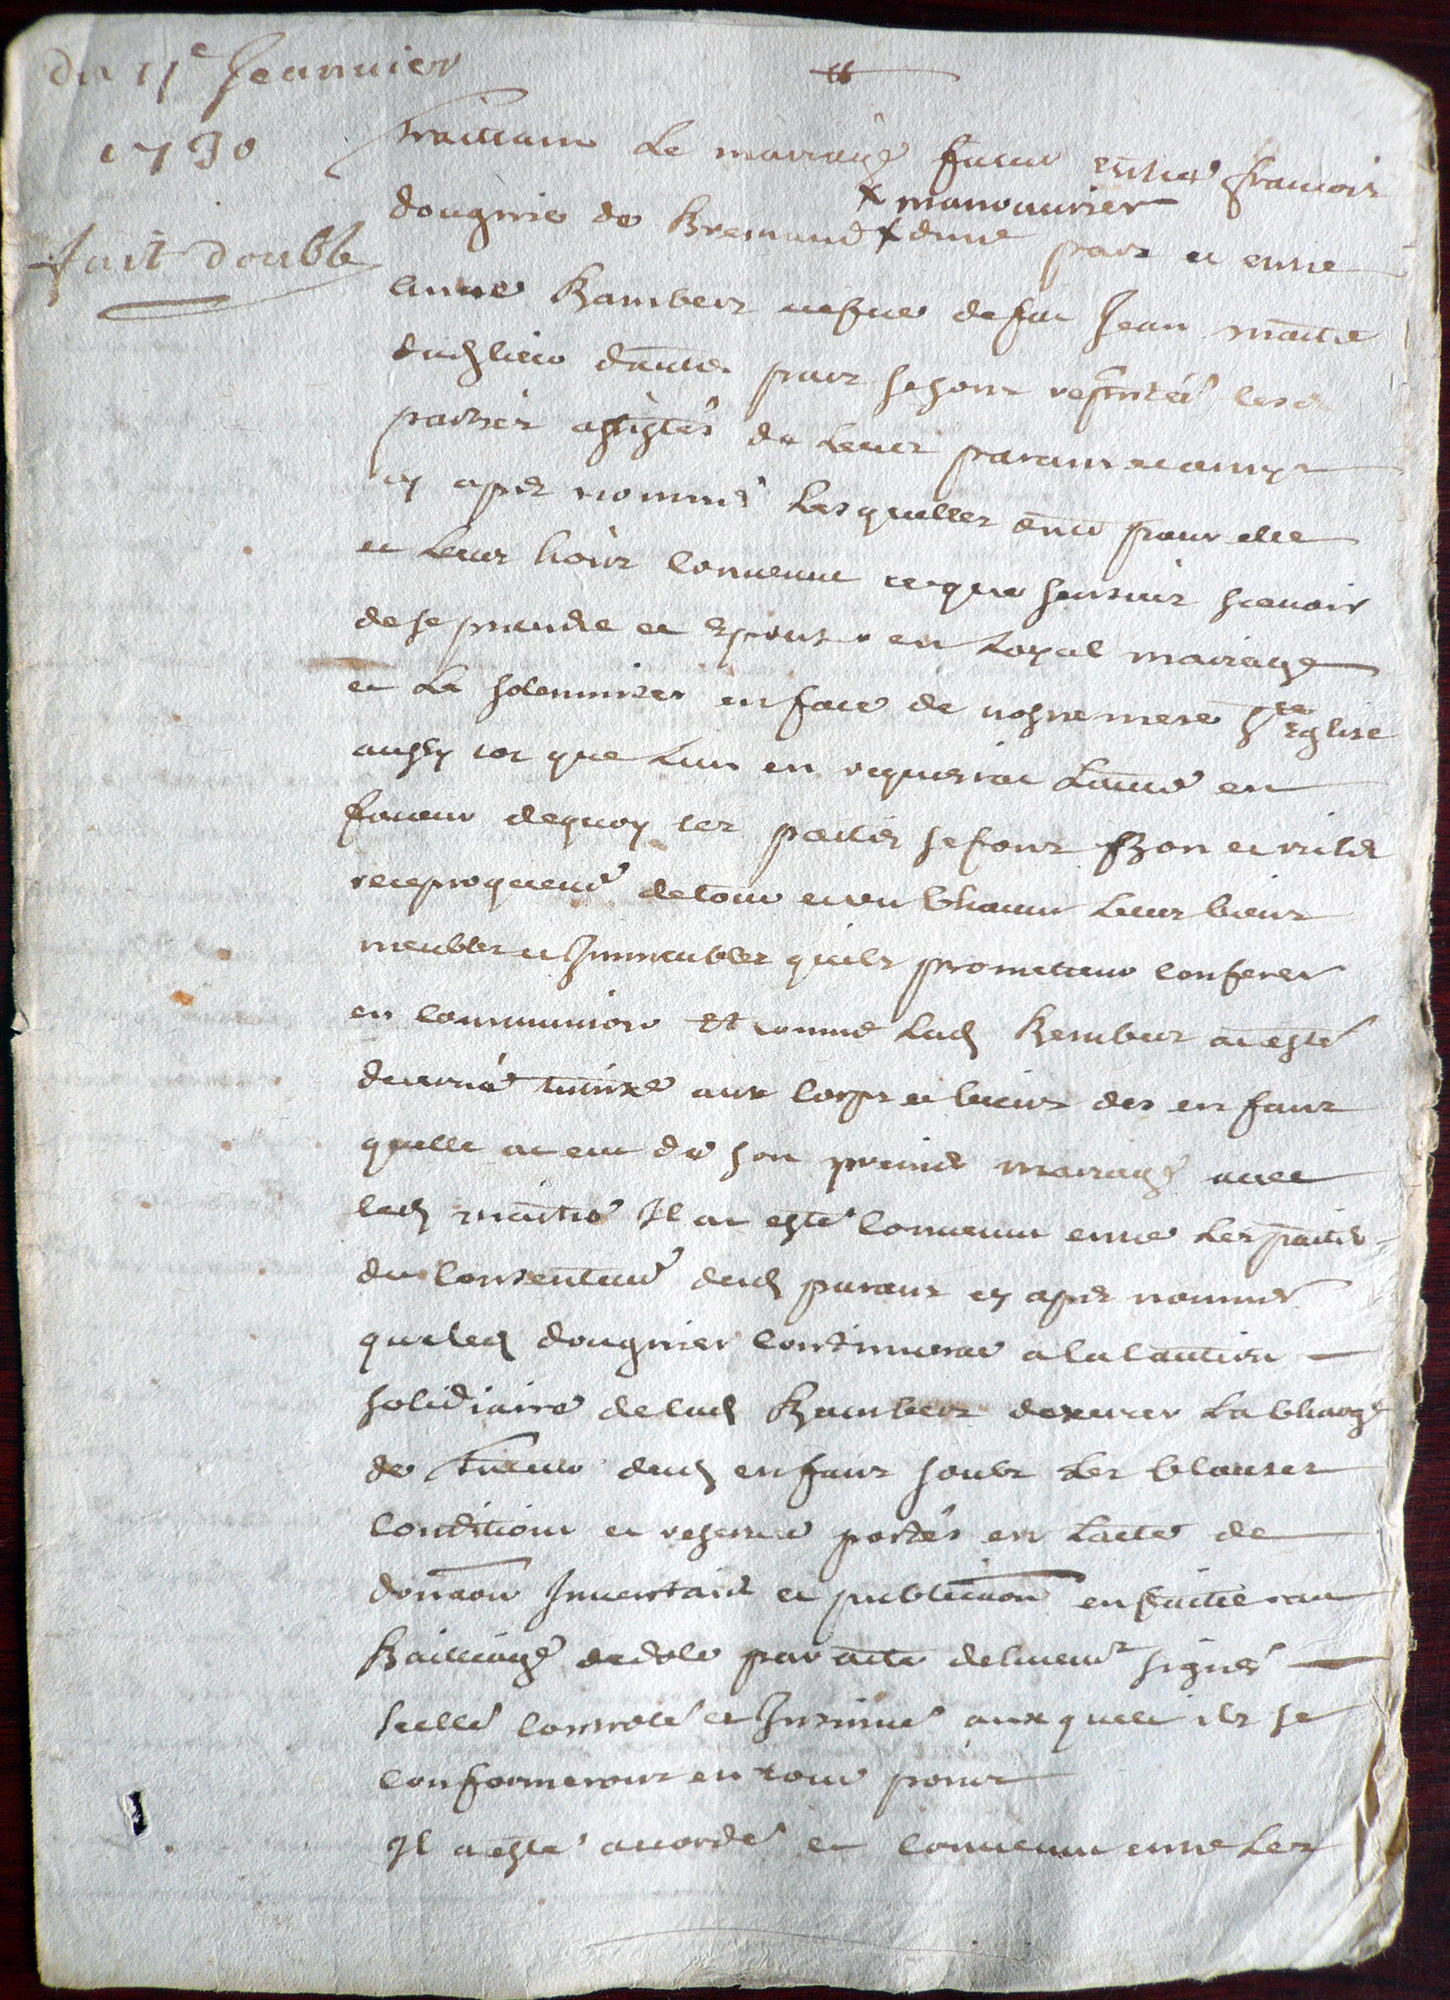 du 11e Jeanvier
1730
fait double
Traittant le mariage futur entre francois
× manouvrier
dougnie de Bremand × dune part et entre
Anne Bambert vefve de fut Jean maitre
dud lieu dautre part se sont represtés lesd
parties assistés de leurs parans et amys
cy apres nommés Lesquelles ont pour elle
et leurs hoirs convenut ce que sensuit scavoir
de se prandre et Epous en Loyal mariage
et Le solemniser en face de nostre mere Ste Eglise
aussy tot que Lun en requerrat Lautre en
faveur dequoy les parties se font Bon et riches
reciproquemt de tous et un chacun leurs biens
meubles et Immeubles quils promettent conferer
en communion Et comme Lad Bembert at esté
decrété tutrixe aux corps et biens des enfans
quelle at eut de son premier mariage avec
led maitre Il at esté convenut entre les parties
du consentemt desd parans cy apres nommés
que led dougnier continuerat a la caution
solidiaire de lad Bambert dexercer la charge
de Tuteur desd enfans soubs les clauses
conditions et reserve portés en Lacte de
donnaon Inventaire et publicaon en faitte au
Bailliage de dole par acte deluemt signés
scellé controlé et Insinué auxquels ils se
conformeront en tous points
Il at esté accordé et convenut entre Les